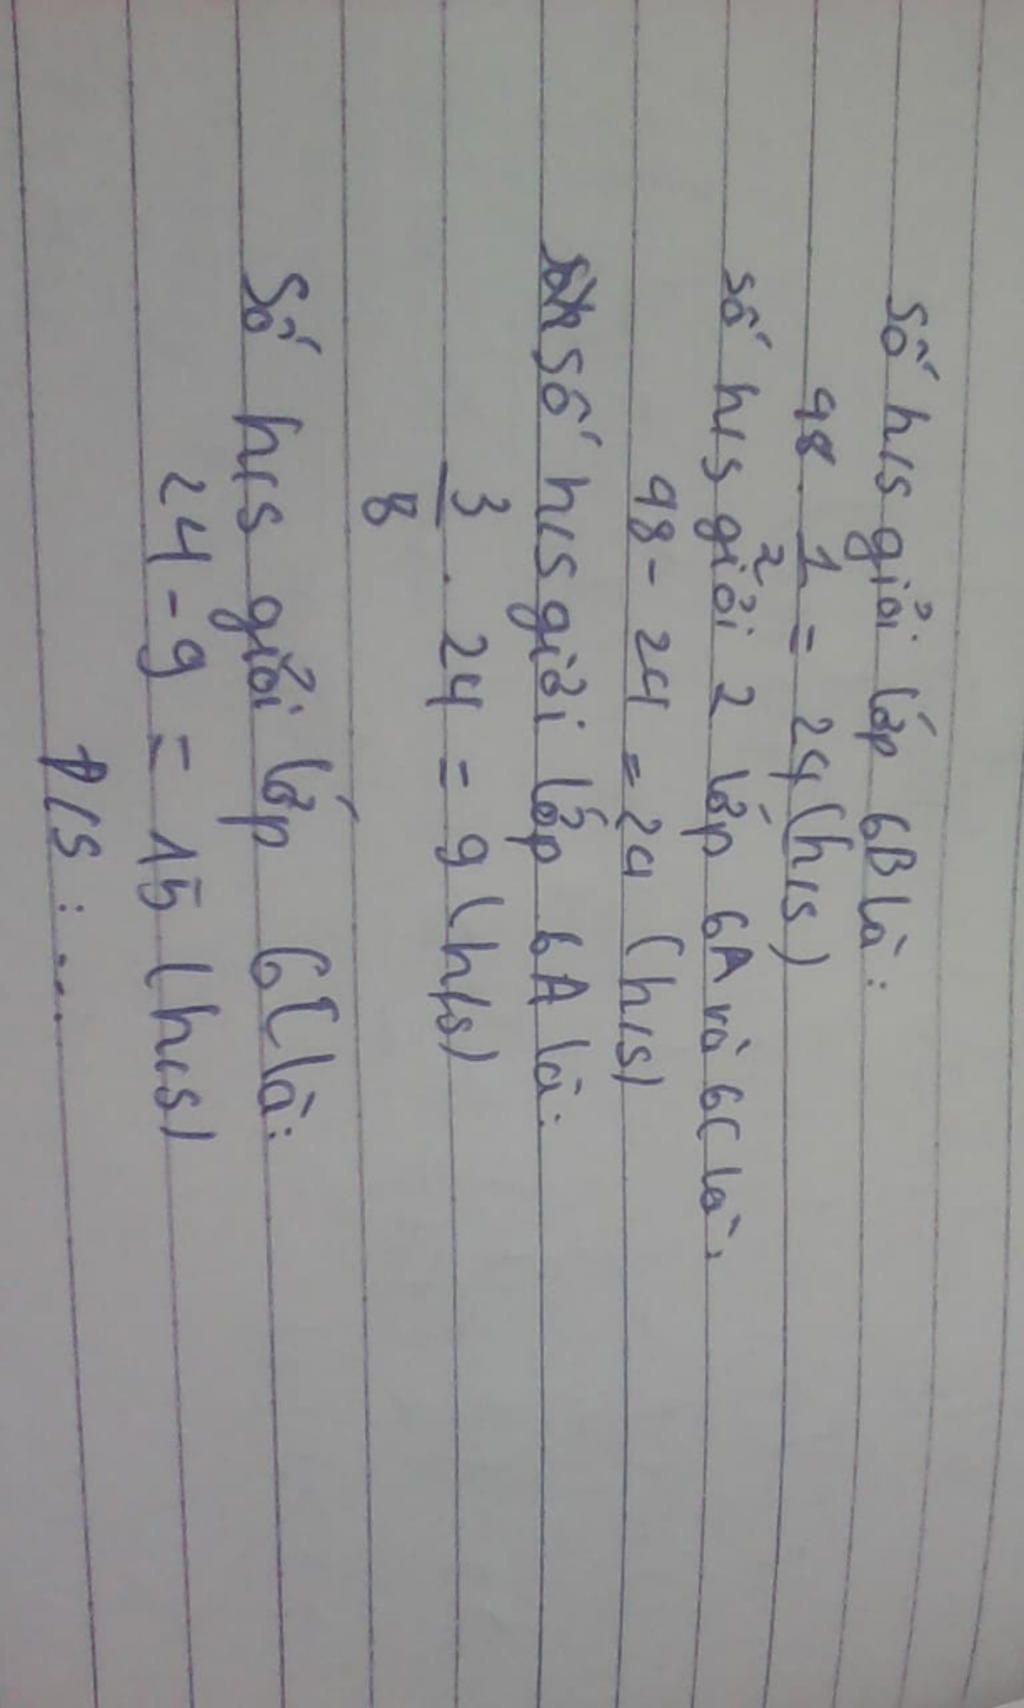 Số h/s giỏi lớp 6B là:
48 . 1/2 = 24 (h/s)
số h/s giỏi 2 lớp 6A và 6C là:
48 - 24 = 24 (h/s)
số h/s giỏi lớp 6A là:
3/8 . 24 = 9 (h/s)
Số h/s giỏi lớp 6C là:
24 - 9 = 15 (h/s)
Đ/S: ...